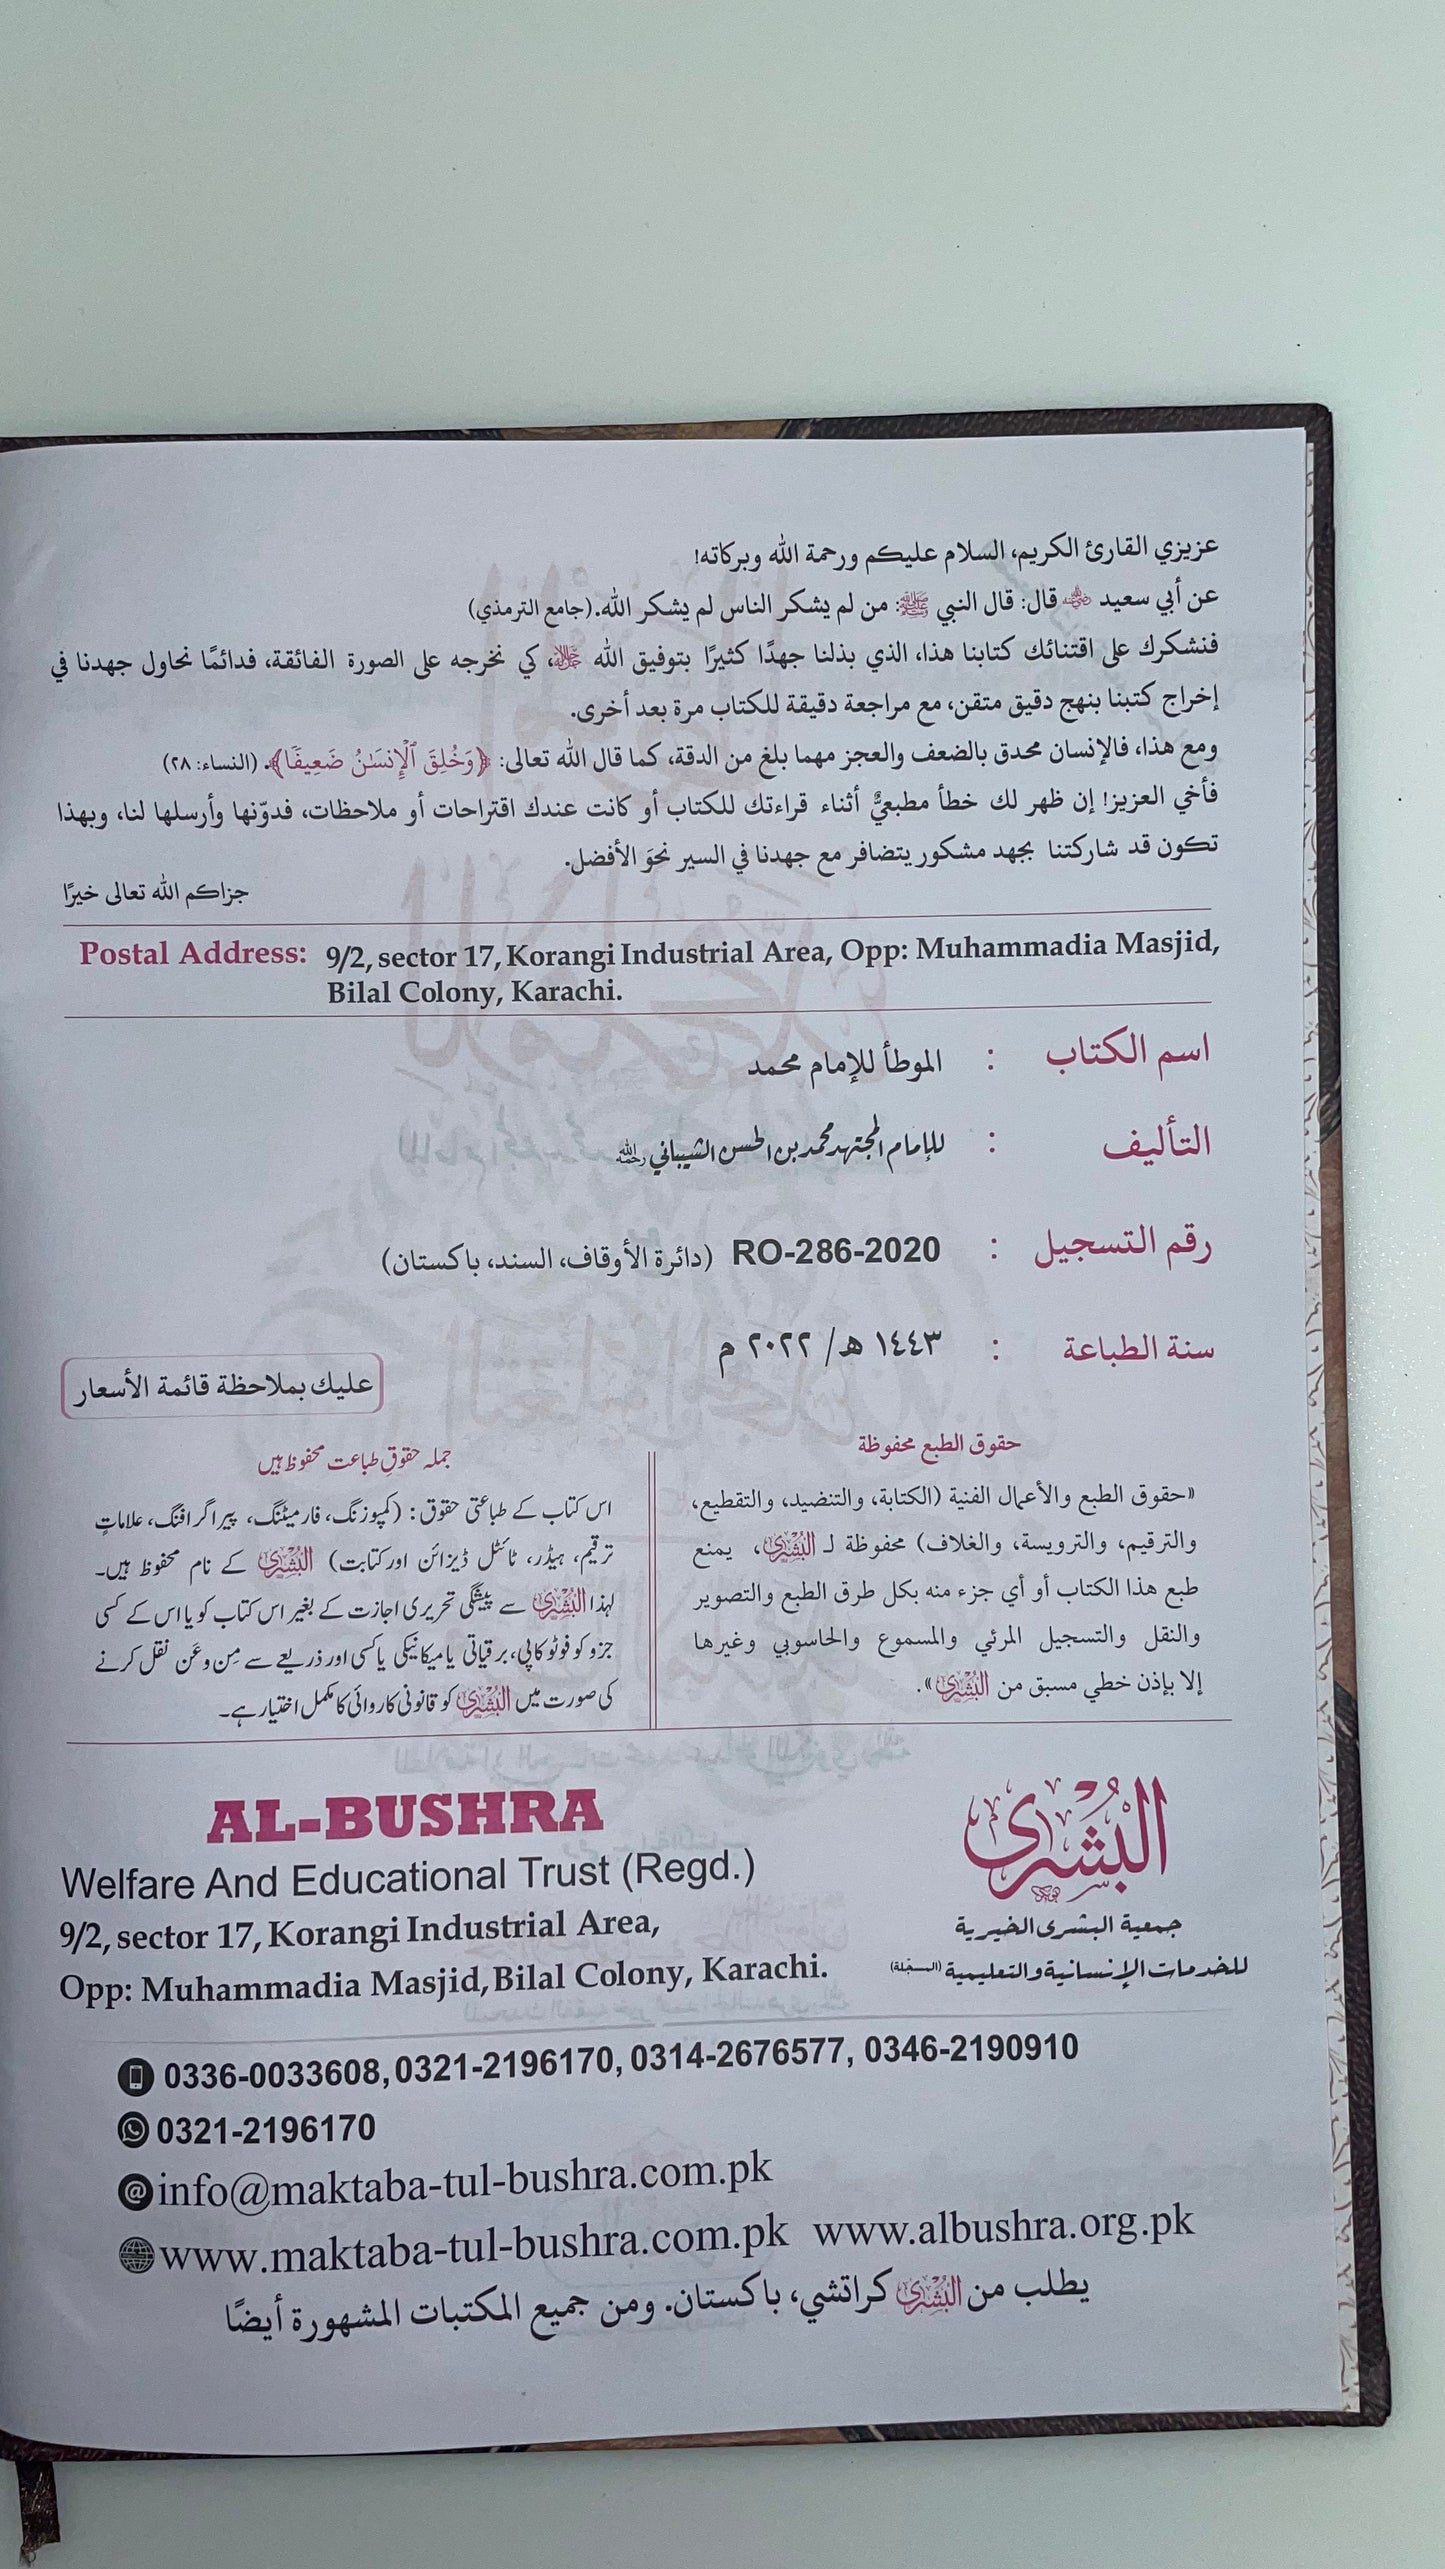 عزيزي القارئ الكريم، السلام عليكم ورحمة الله وبركاته!
عن أبي سعيد ﵁ قال: قال النبي ﷺ: من لم يشكر الناس لم يشكر الله. (جامع الترمذي)
فنشكرك على اقتنائك كتابنا هذا، الذي بذلنا جهدًا كثيرًا بتوفيق الله ﷻ، كي نخرجه على الصورة الفائقة، فدائمًا نحاول جهدنا في
إخراج كتبنا بنهج دقيق متقن، مع مراجعة دقيقة للكتاب مرة بعد أخرى.
ومع هذا، فالإنسان محدق بالضعف والعجز مهما بلغ من الدقة، كما قال الله تعالى: ﴿وَخُلِقَ ٱلْإِنسَـٰنُ ضَعِيفًا﴾. (النساء: ٢٨)
فأخي العزيز! إن ظهر لك خطأ مطبعيٌّ أثناء قراءتك للكتاب أو كانت عندك اقتراحات أو ملاحظات، فدوّنها وأرسلها لنا، وبهذا
تكون قد شاركتنا بجهد مشكور يتضافر مع جهدنا في السير نحوَ الأفضل.
جزاكم الله تعالى خيرًا
Postal Address: 9/2, sector 17, Korangi Industrial Area, Opp: Muhammadia Masjid,
Bilal Colony, Karachi.
اسم الكتاب : الموطأ للإمام محمد
التأليف : للإمام المجتهد محمد بن الحسن الشيباني رحمه الله
رقم التسجيل : RO-286-2020 (دائرة الأوقاف، السند، باكستان)
سنة الطباعة : ١٤٤٣ هـ/ ٢٠٢٢ م
عليك بملاحظة قائمة الأسعار
حقوق الطبع محفوظة
«حقوق الطبع والأعمال الفنية (الكتابة، والتنضيد، والتقطيع،
والترقيم، والترويسة، والغلاف) محفوظة لـ البُشْرٰى، يمنع
طبع هذا الكتاب أو أي جزء منه بكل طرق الطبع والتصوير
والنقل والتسجيل المرئي والمسموع والحاسوبي وغيرها
إلا بإذن خطي مسبق من البُشْرٰى».
جملہ حقوقِ طباعت محفوظ ہیں
اس کتاب کے طباعتی حقوق: (کمپوزنگ، فارمیٹنگ، پیراگرافنگ، علاماتِ
ترقیم، ہیڈر، ٹائٹل ڈیزائن اور کتابت) البُشْرٰى کے نام محفوظ ہیں۔
لہذا البُشْرٰى سے پیشگی تحریری اجازت کے بغیر اس کتاب کو یا اس کے کسی
جزو کو فوٹو کاپی، برقیاتی یا میکانیکی یا کسی اور ذریعے سے مِن و عَن نقل کرنے
کی صورت میں البُشْرٰى کو قانونی کاروائی کا مکمل اختیار ہے۔
البُشْرٰى
جمعية البشرى الخيرية
للخدمات الإنسانية والتعليمية (المسجّلة)
AL-BUSHRA
Welfare And Educational Trust (Regd.)
9/2, sector 17, Korangi Industrial Area,
Opp: Muhammadia Masjid, Bilal Colony, Karachi.
0336-0033608, 0321-2196170, 0314-2676577, 0346-2190910
0321-2196170
info@maktaba-tul-bushra.com.pk
www.maktaba-tul-bushra.com.pk www.albushra.org.pk
يطلب من البُشْرٰى كراتشي، باكستان. ومن جميع المكتبات المشهورة أيضًا